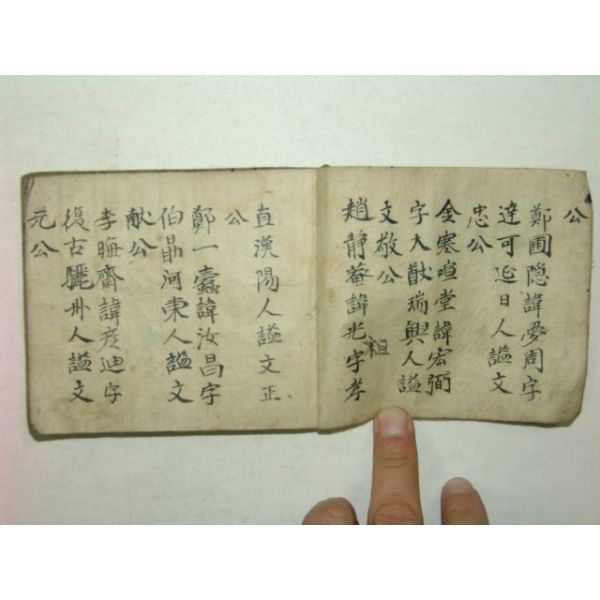 公
鄭圃隐諱夢周字
達可迎日人謚文
忠公
金寒暄堂諱宏弼
字大猷瑞興人謚
文敬公
趙静菴諱光祖字孝
直漢陽人謚文正
公
鄭一蠹諱汝昌字
伯勗河東人謚文
献公
李晦齋諱彦迪字
復古驪州人謚文
元公